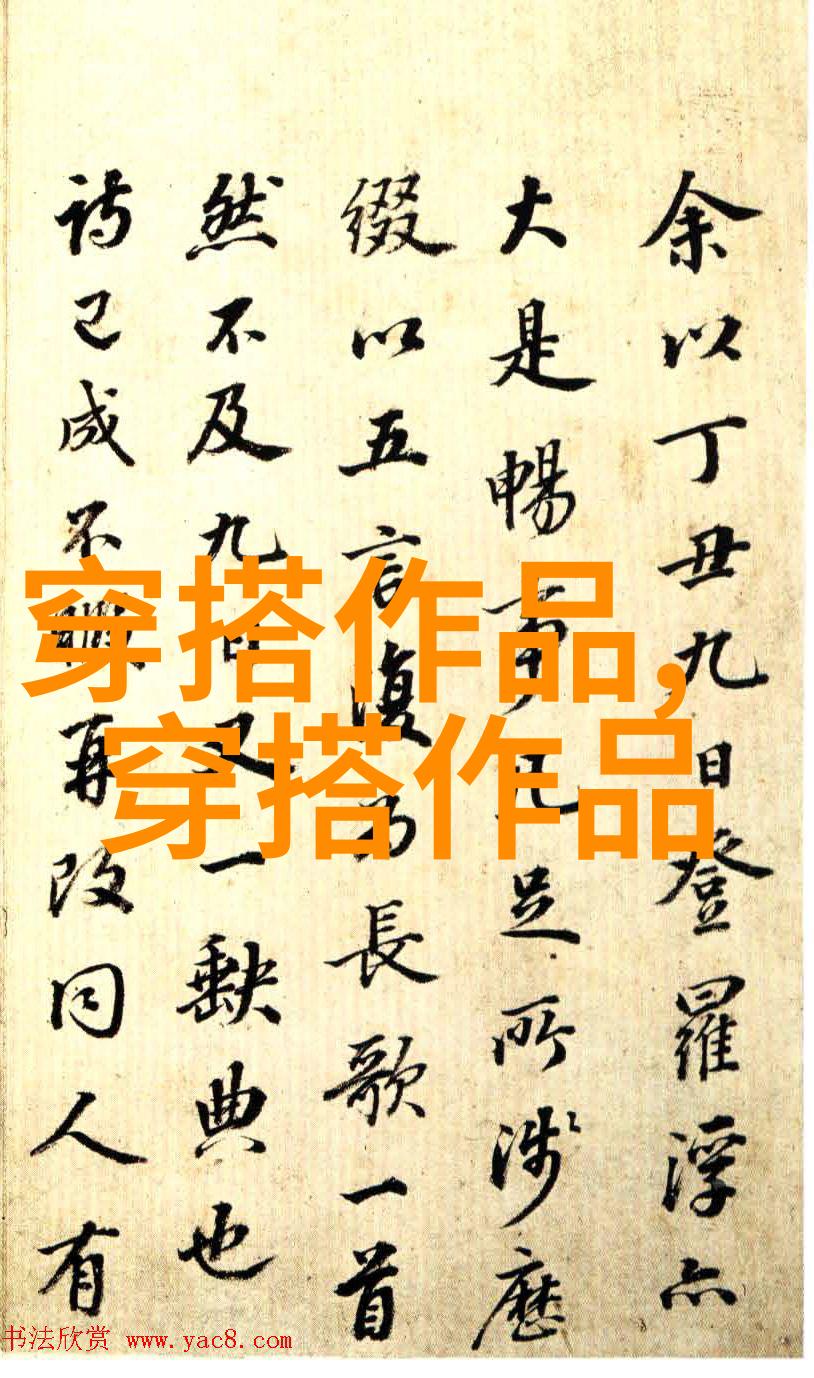 余以丁丑九日登羅浮亦
大是暢事凡足所涉歷
綴以五言復為長歌一首
然不及九日又一缺典也
詩已成不再改同人有
穿搭作品,
穿搭作品
书法欣赏 www.yac8.com